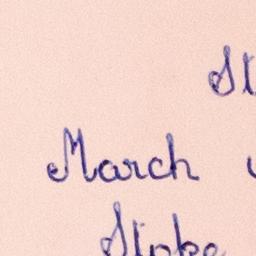 St
March
Stoke